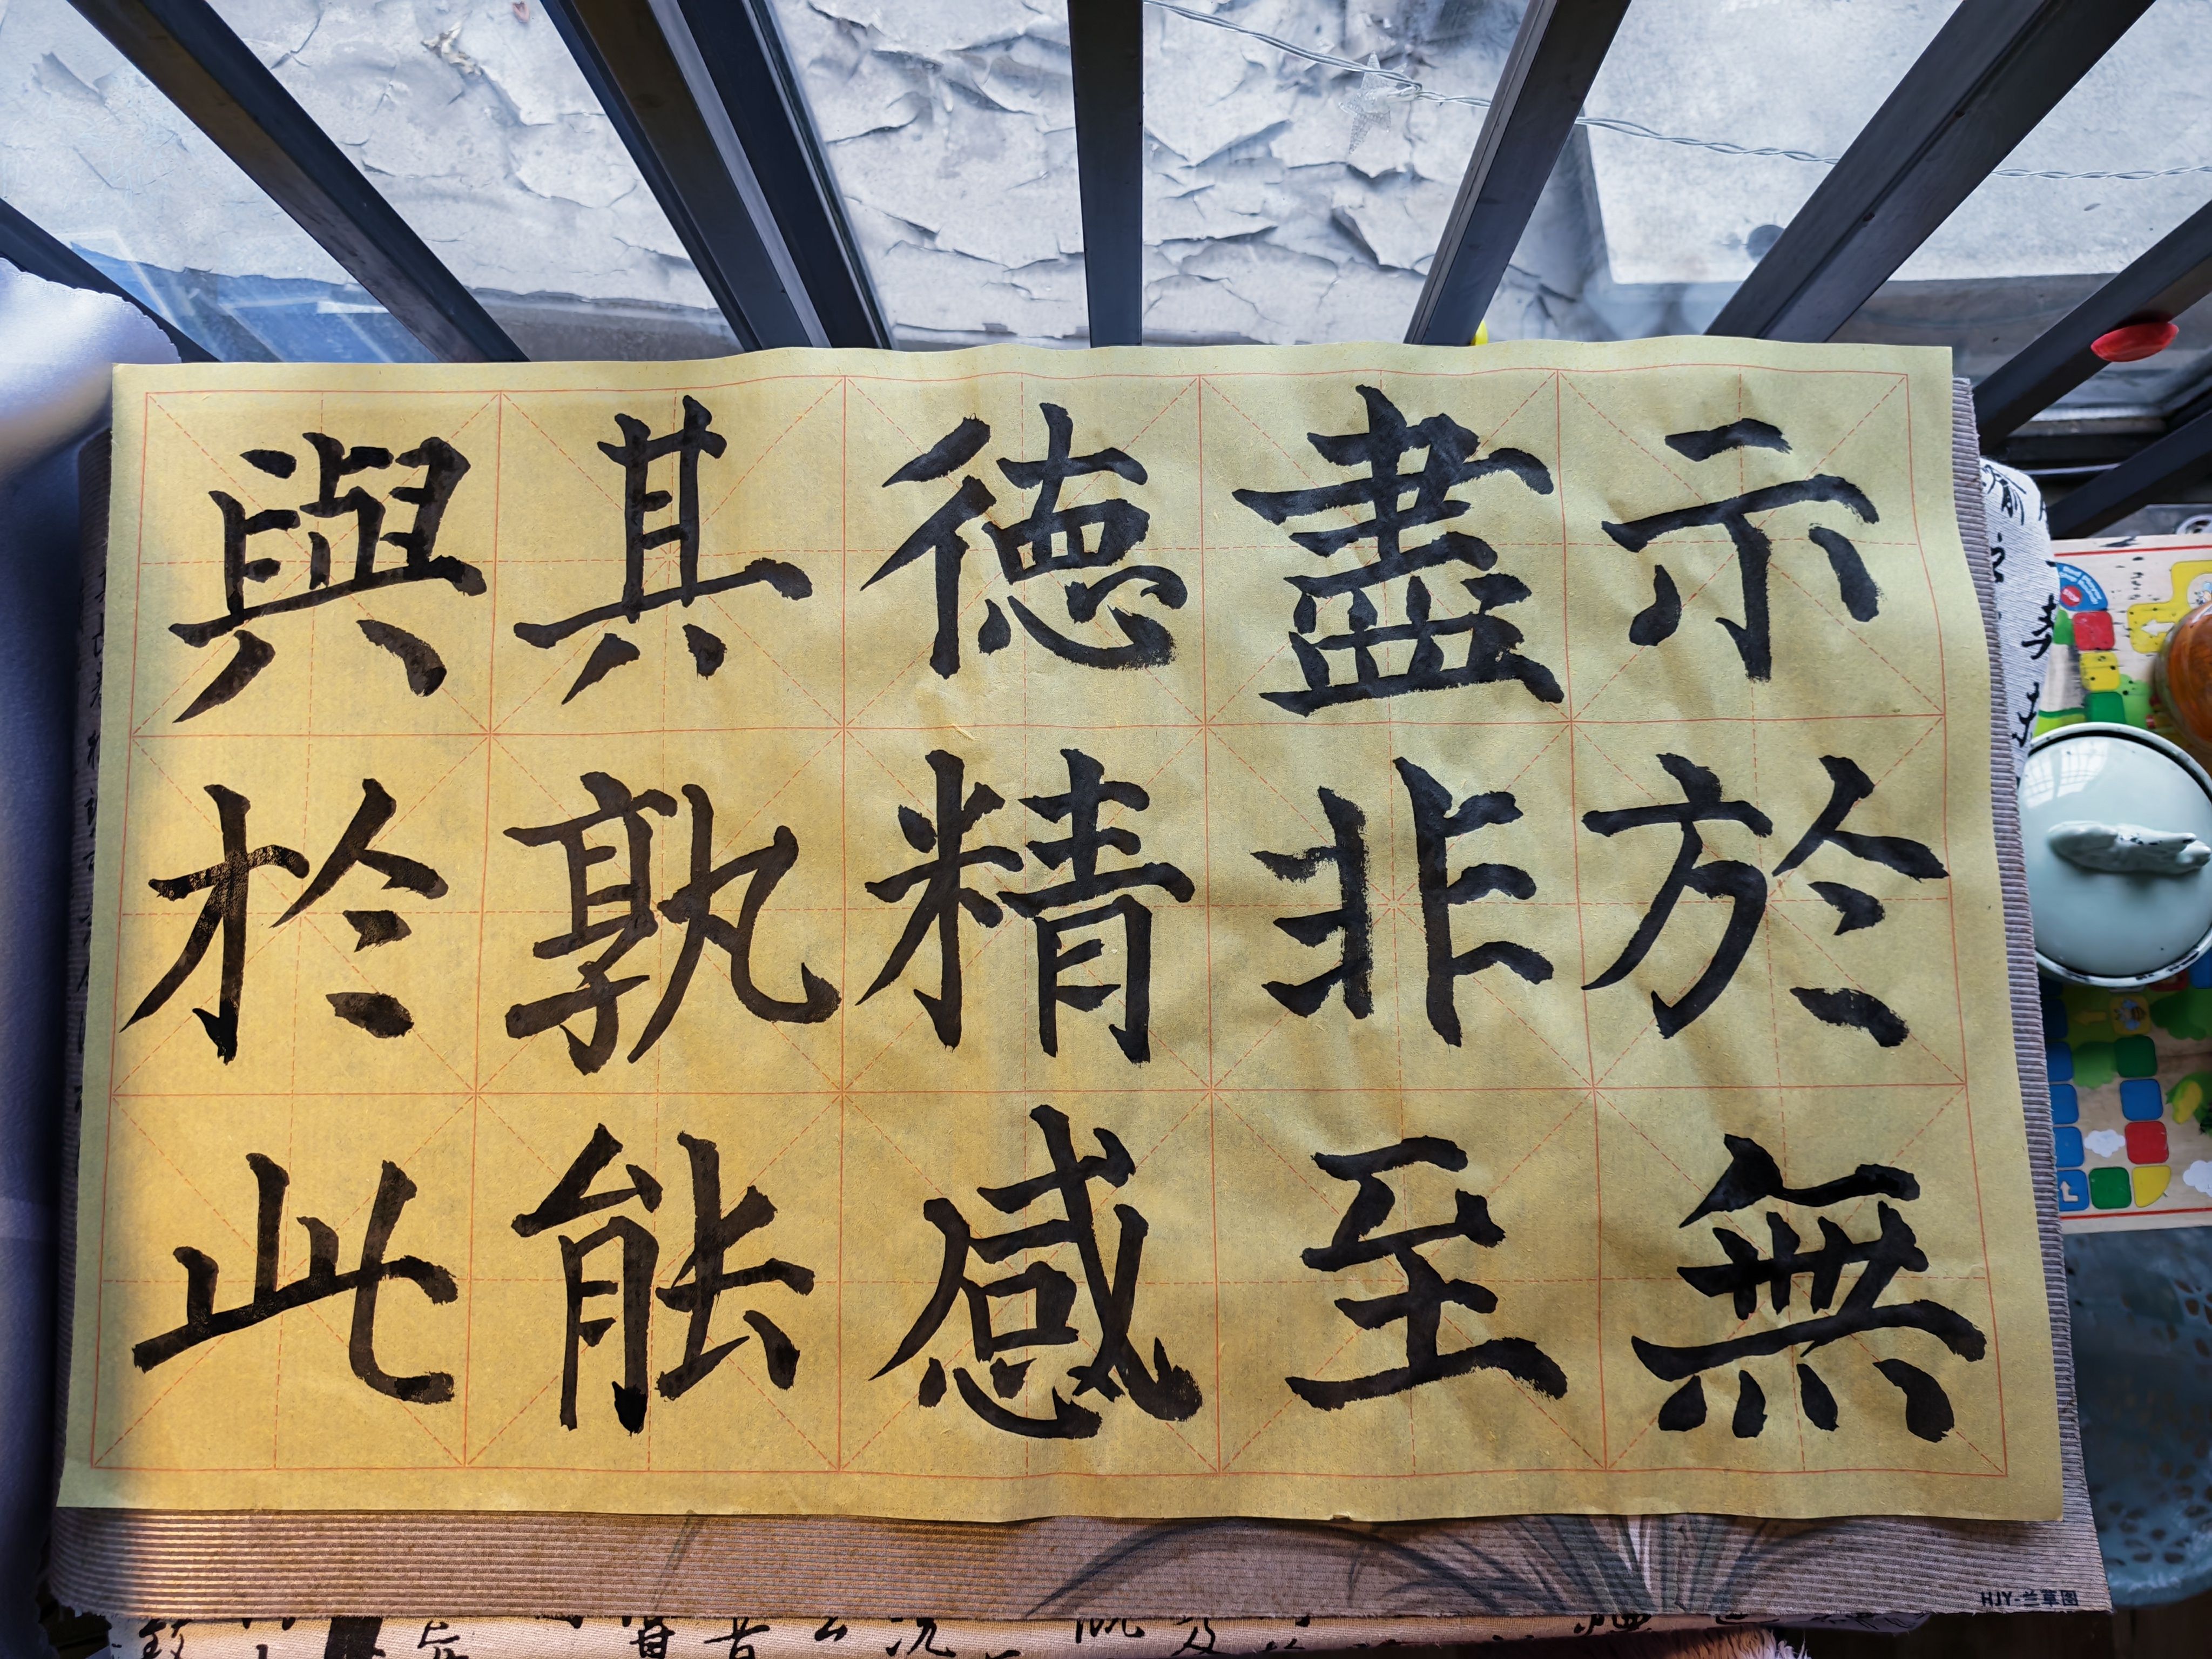 示於無
盡非至
德精感
其孰能
與於此
HJY-兰草图